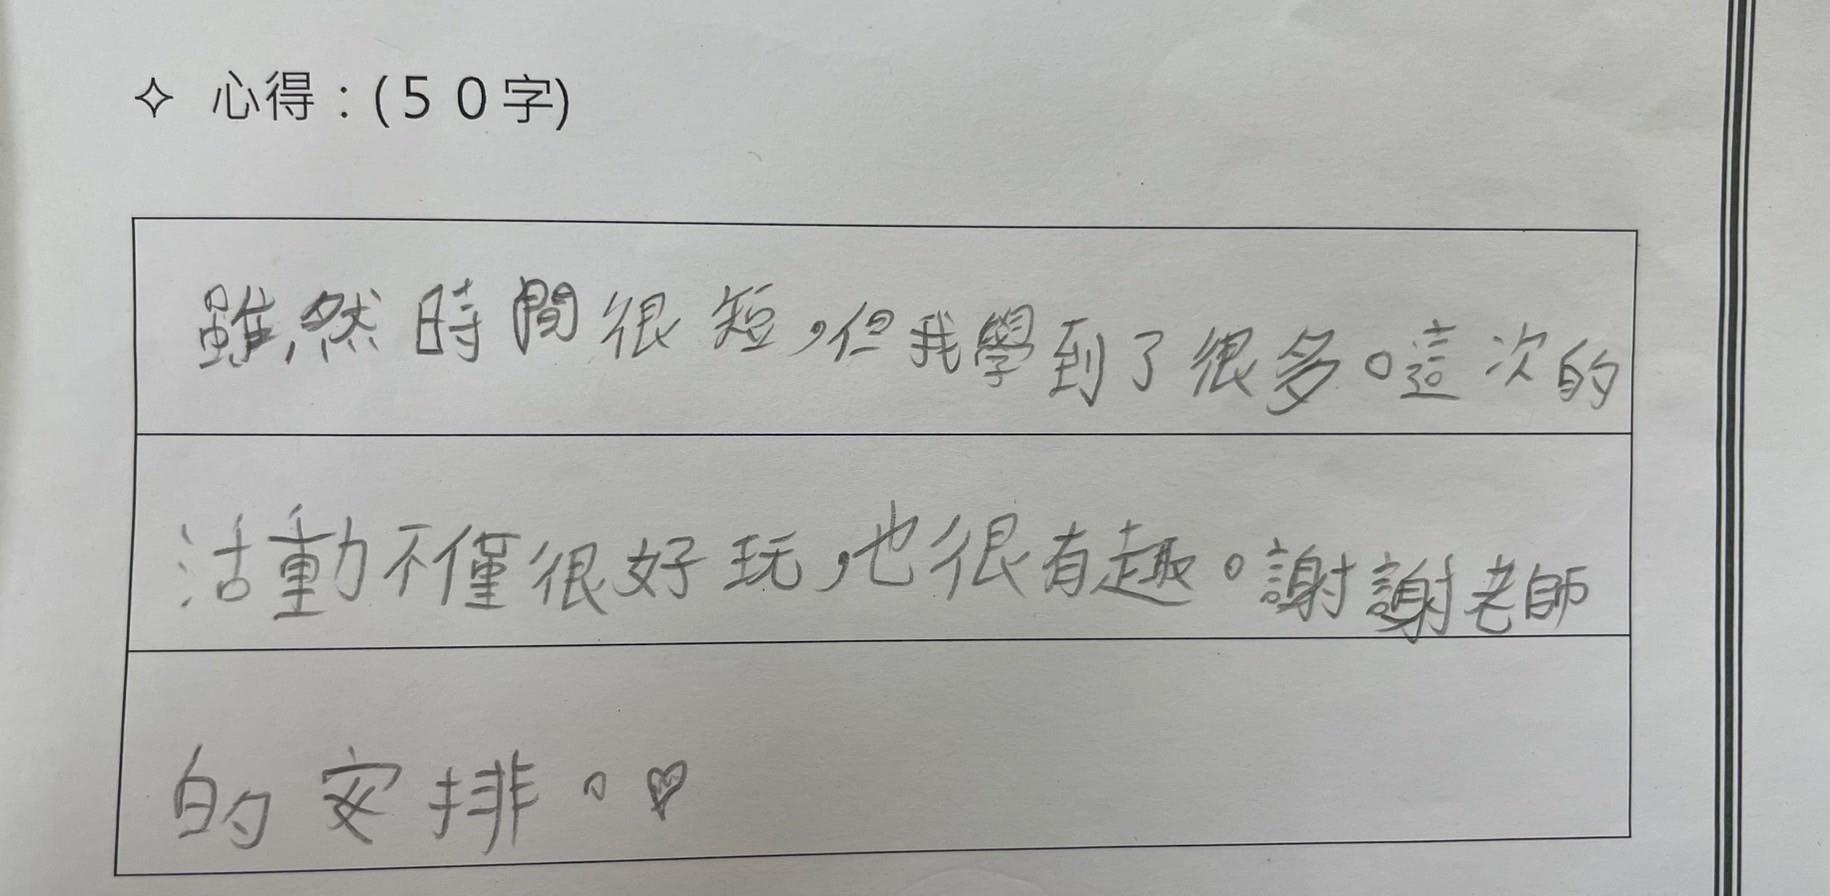 ✧ 心得：(５０字)
雖然時間很短，但我學到了很多。這次的
活動不僅很好玩，也很有趣。謝謝老師
的安排。♡